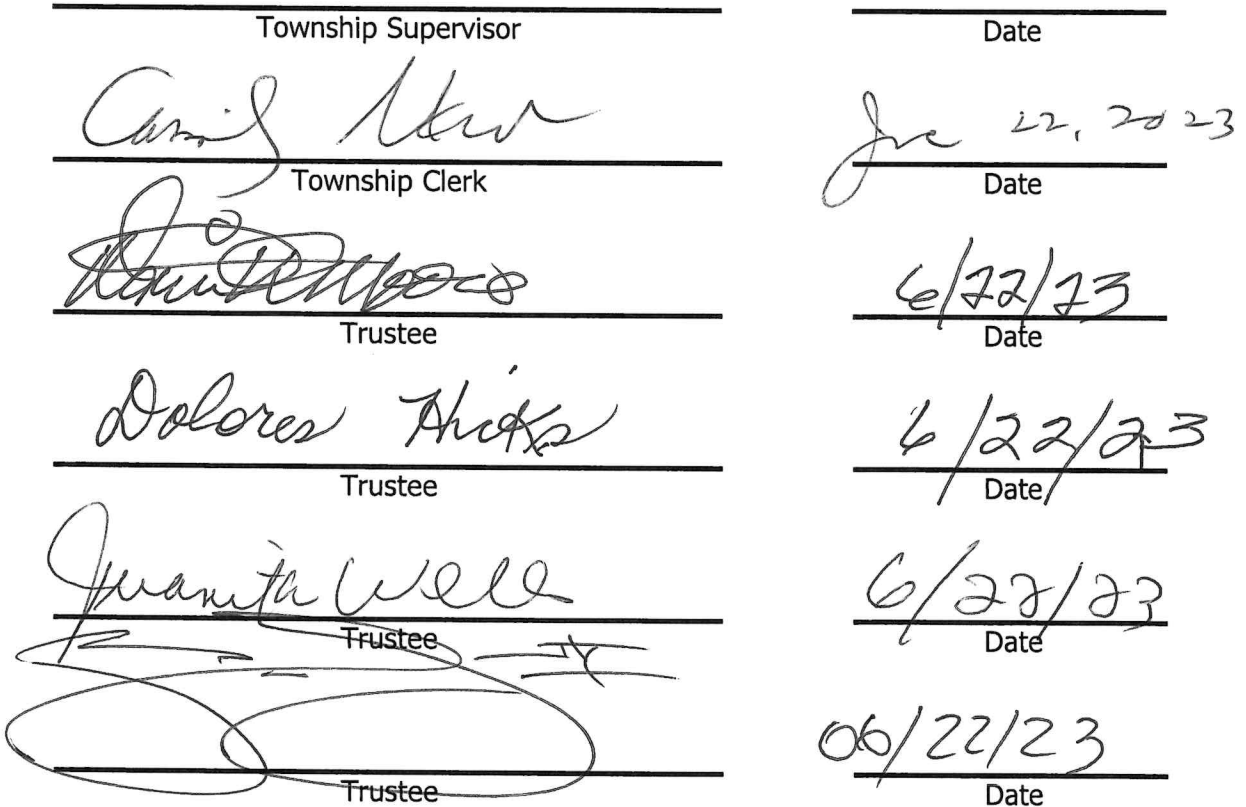 Township Supervisor Date
June 22, 2023
Township Clerk Date
6/22/23
Trustee Date
Dolores Hicks 6/22/23
Trustee Date
Juanita Wells 6/22/23
Trustee Date
IV
06/22/23
Trustee Date